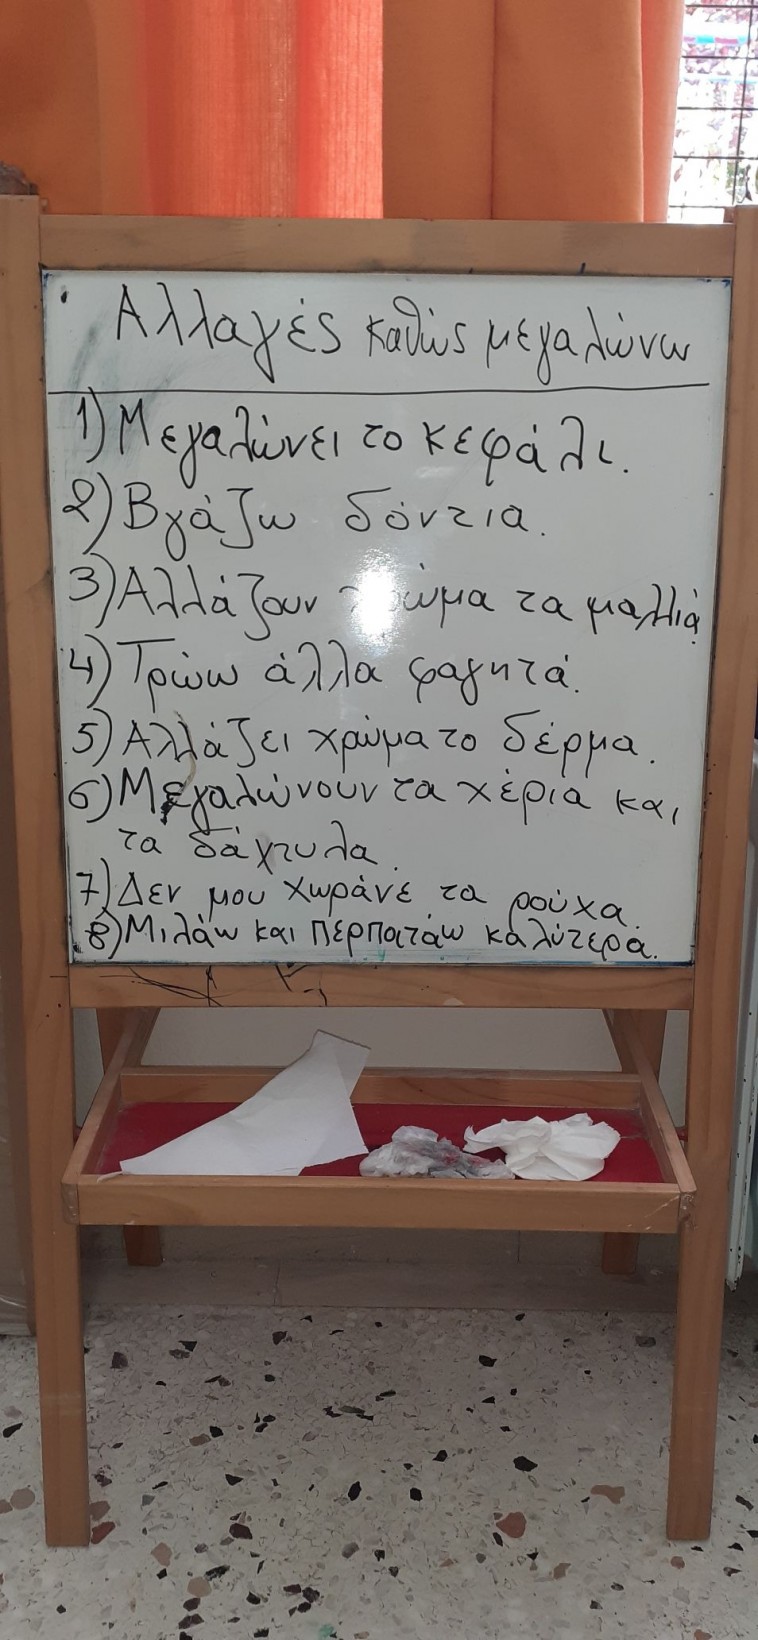 Αλλαγές καθώς μεγαλώνω
1) Μεγαλώνει το κεφάλι.
2) Βγάζω δόντια.
3) Αλλάζουν χρώμα τα μαλλιά.
4) Τρώω άλλα φαγητά.
5) Αλλάζει χρώμα το δέρμα.
6) Μεγαλώνουν τα χέρια και
τα δάχτυλα.
7) Δεν μου χωράνε τα ρούχα.
8) Μιλάω και περπατάω καλύτερα.